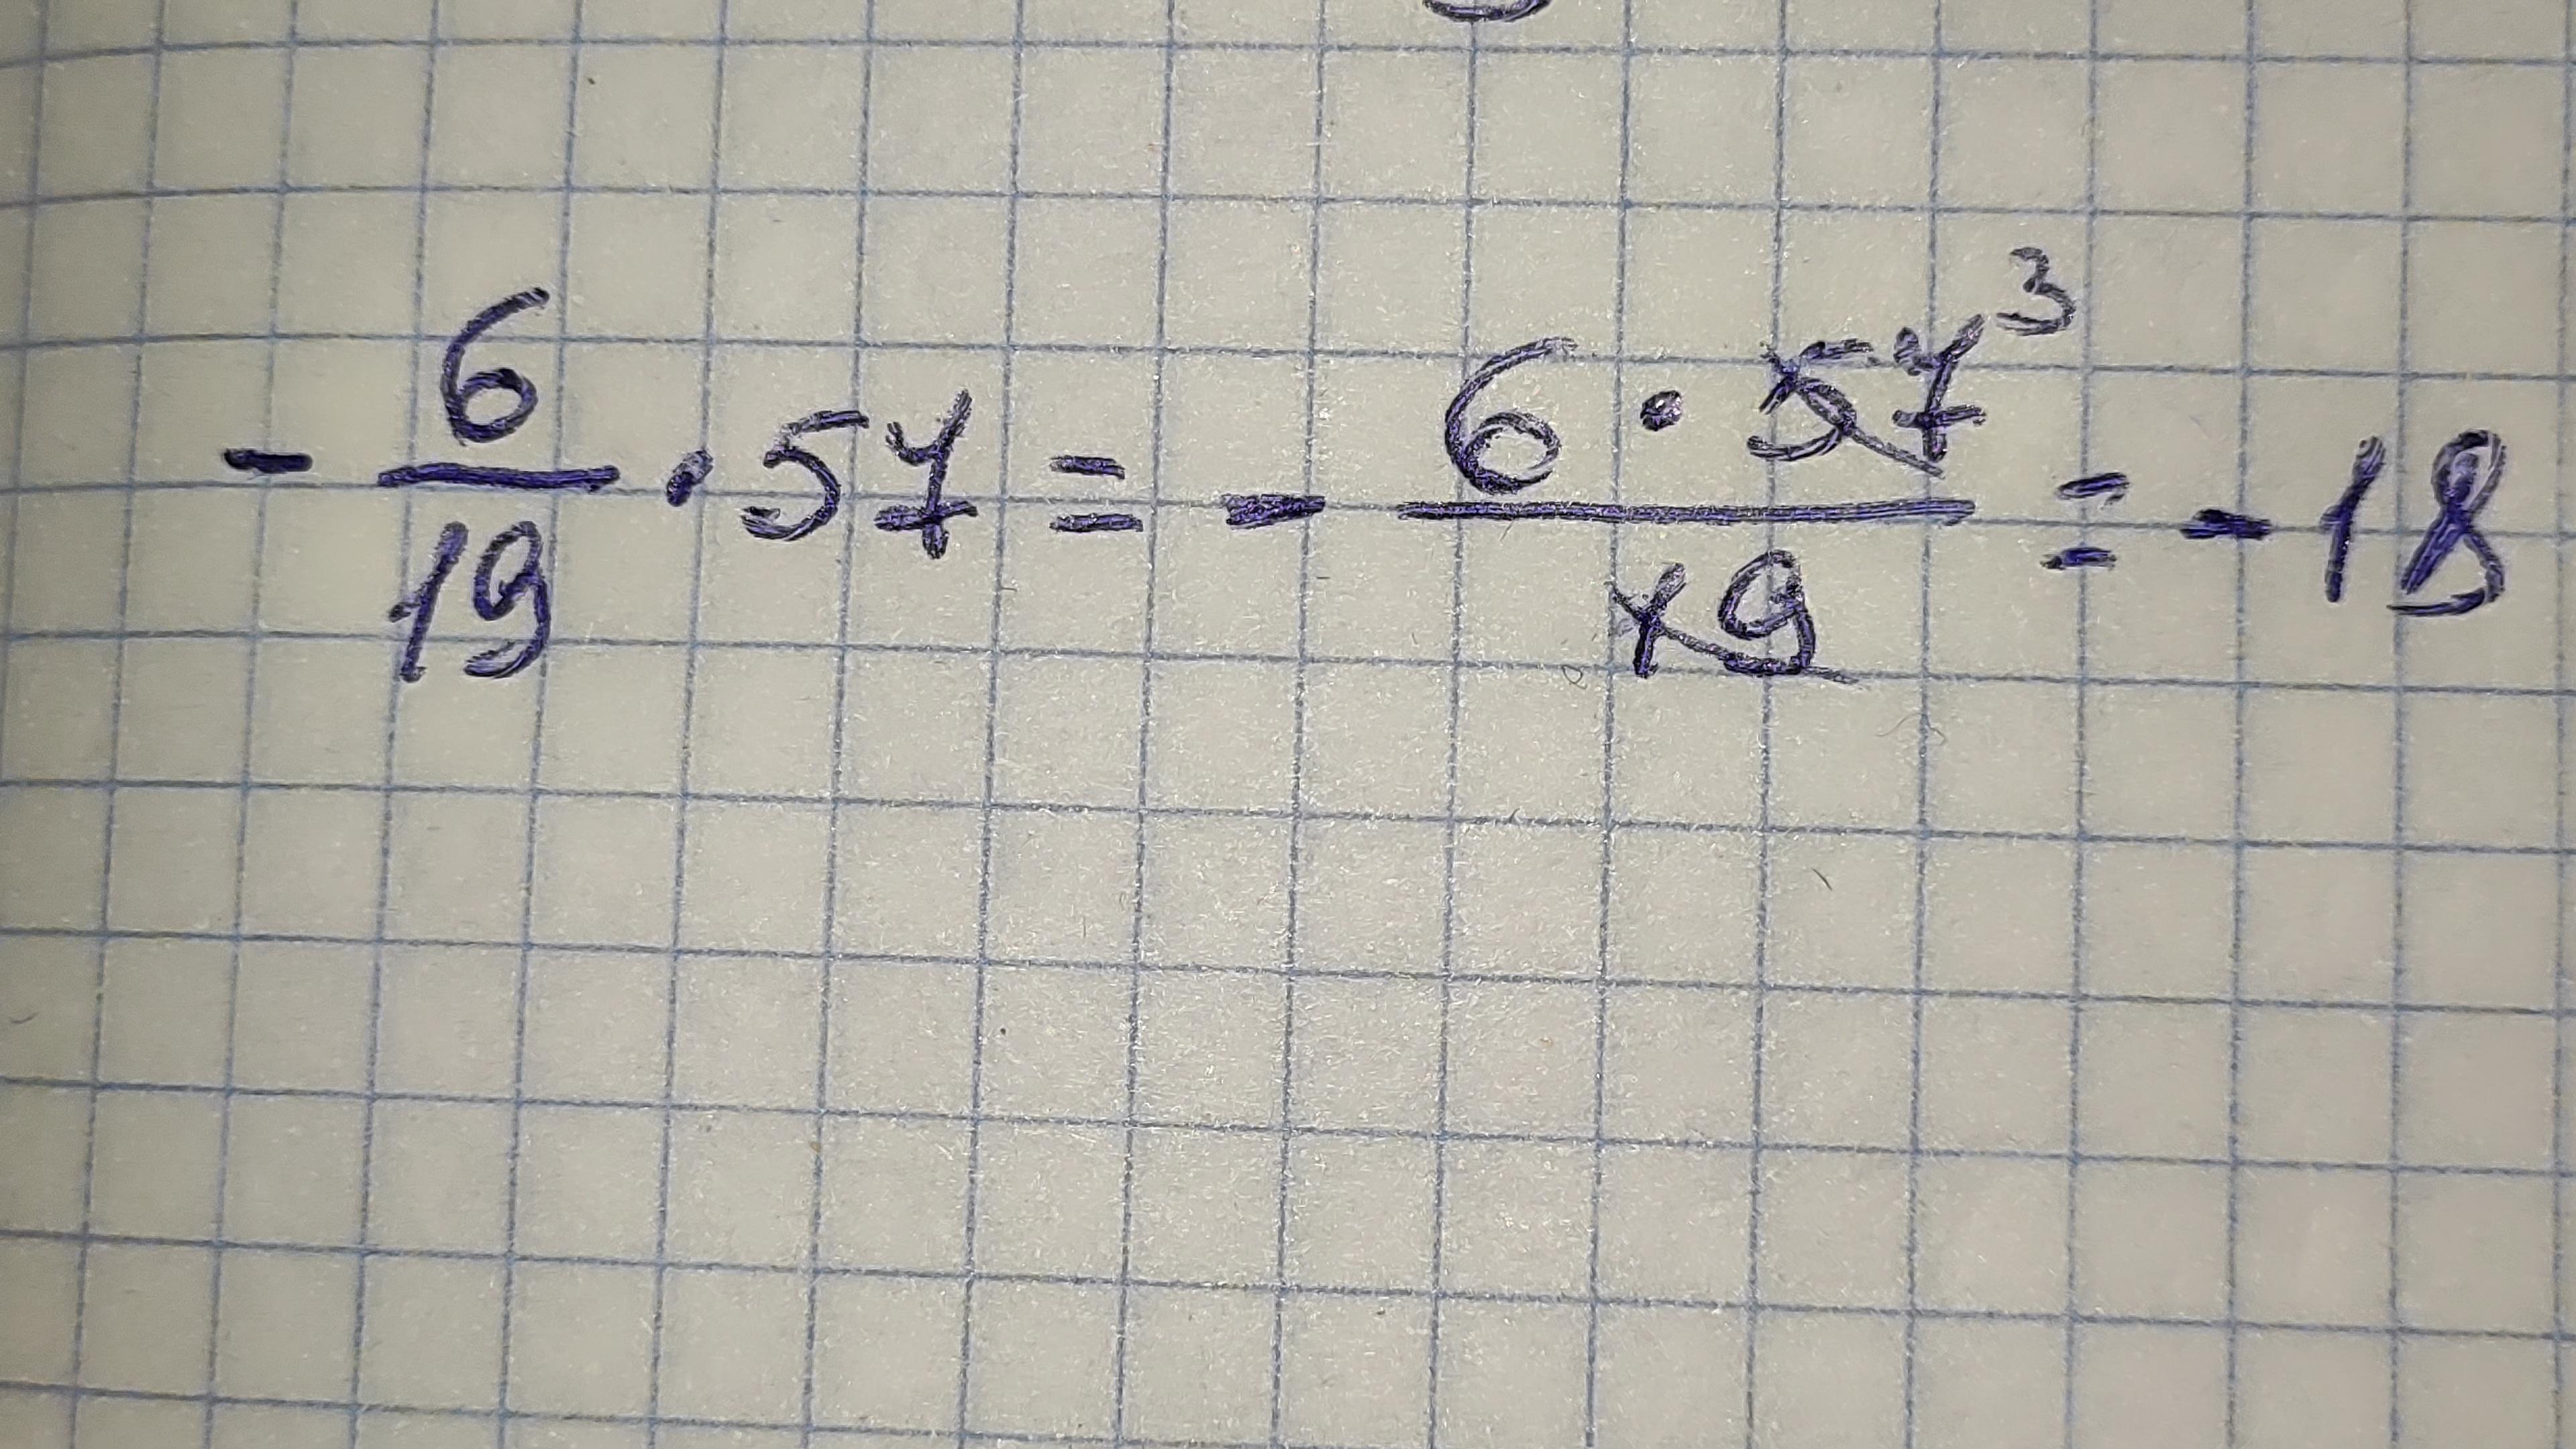 - 6/19 · 57 = - 6 · 57³/19 = - 18